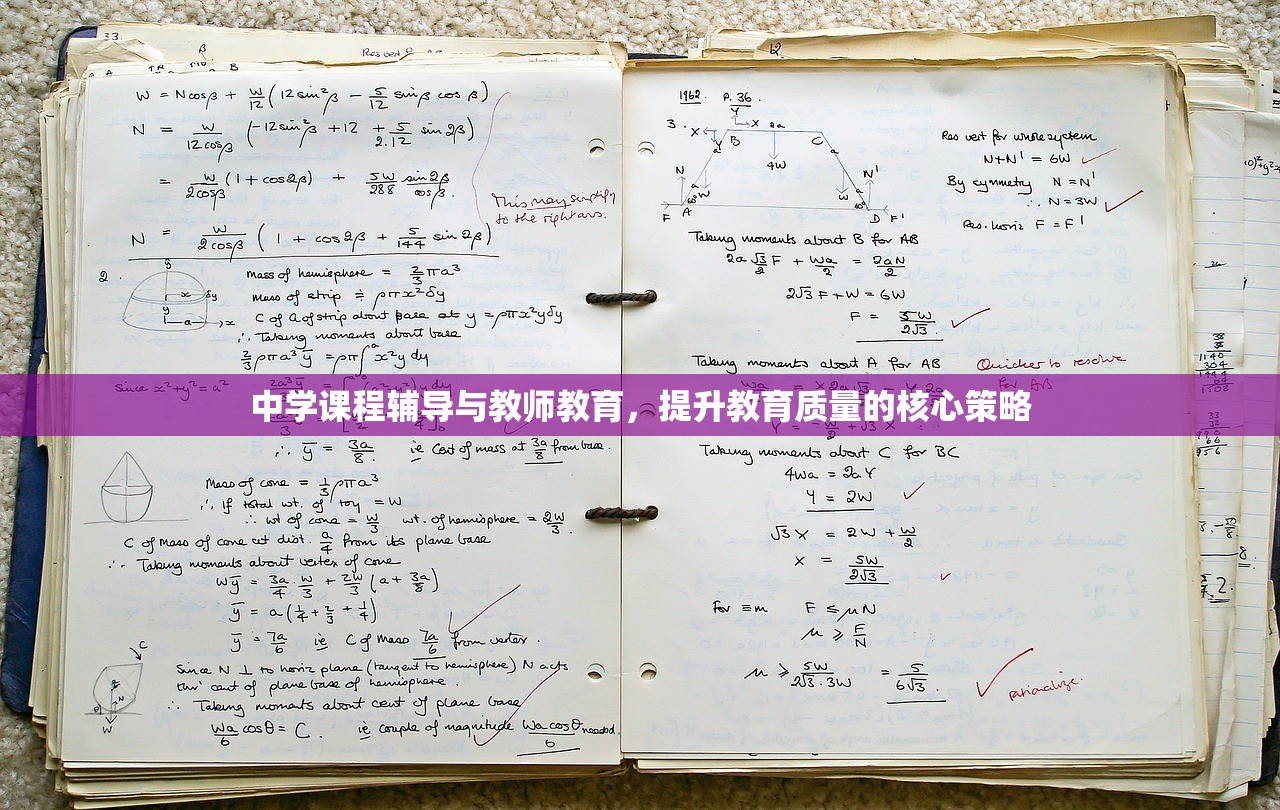 33.
β
Res vert
B
W = N cos β + W/12 (12 sin² β − 5/12 sin β cos β)
N = W/12 cos β (−12 sin² β + 12 + 5/2.12 sin 2β)
= W/2 cos β (1 + cos 2β) + 5W/288 sin 2β/cos β.
This may simplify
to the right ans.
N = W/2 cos β (1 + cos 2β + 5/144 sin 2β)
2.
Mass of hemisphere = 2/3 π a³
mass of strip ≑ ρπx²δy
C of G of strip about base at y = ρπx²yδy
∴ Taking moments about base
2/3 ρπa³ȳ = ρπ∫ᵃx²y dy
Since x²+y² = a²
中学课程辅导与教师教育，提升教育质量的核心策略
∴ ȳ = 3a/8 ie Cent of mass at 3a/8 from base.
Mass of cone = 1/3 ρπa³
∴ If total wt. of toy = W
∴ wt of cone = W/3 wt. of hemisphere = 2W/3.
C of Mass of cone at dist. a/4 from its plane base
∴ Taking moments about vertex of cone
Wȳ = 3a/4 . W/3 + 2W/3 (a + 3a/8)
ȳ = a(1/4 + 2/3 + 1/4)
ȳ = 7a/6 ie C of Mass 7a/6 from vertex.
Since N ⊥ to horiz plane (tangent to hemisphere) N acts
thro' cent of plane base of hemisphere.
∴ Taking moments about cent of plane base
Wa/6 cos θ = C. ie couple of magnitude Wa cos θ/6 needed.
1962. P. 36.
3.
X Y X 2a
B C
4W
N N'
W W
60° 60°
F A D F'
Res vert for whole system
N+N' = 6W
By symmetry N = N'
∴ N = 3W
Res. horiz F = F'
Taking moments about B for AB
2a √3/2 F + Wa/2 = 2aN/2
2√3 F + W = 6W
F = 5W/2√3.
Taking moments about A for AB
Quicker to resolve
for AB
Taking moments about C for BC
4Wa = 2aY
Y = 2W
√3 X = 2W + W/2
X = 5W/2√3
For ≡m F ≤ μN
μ ≥ F/N
μ ≥ 5W/2√3.3W = 5/6√3.
rationalize.